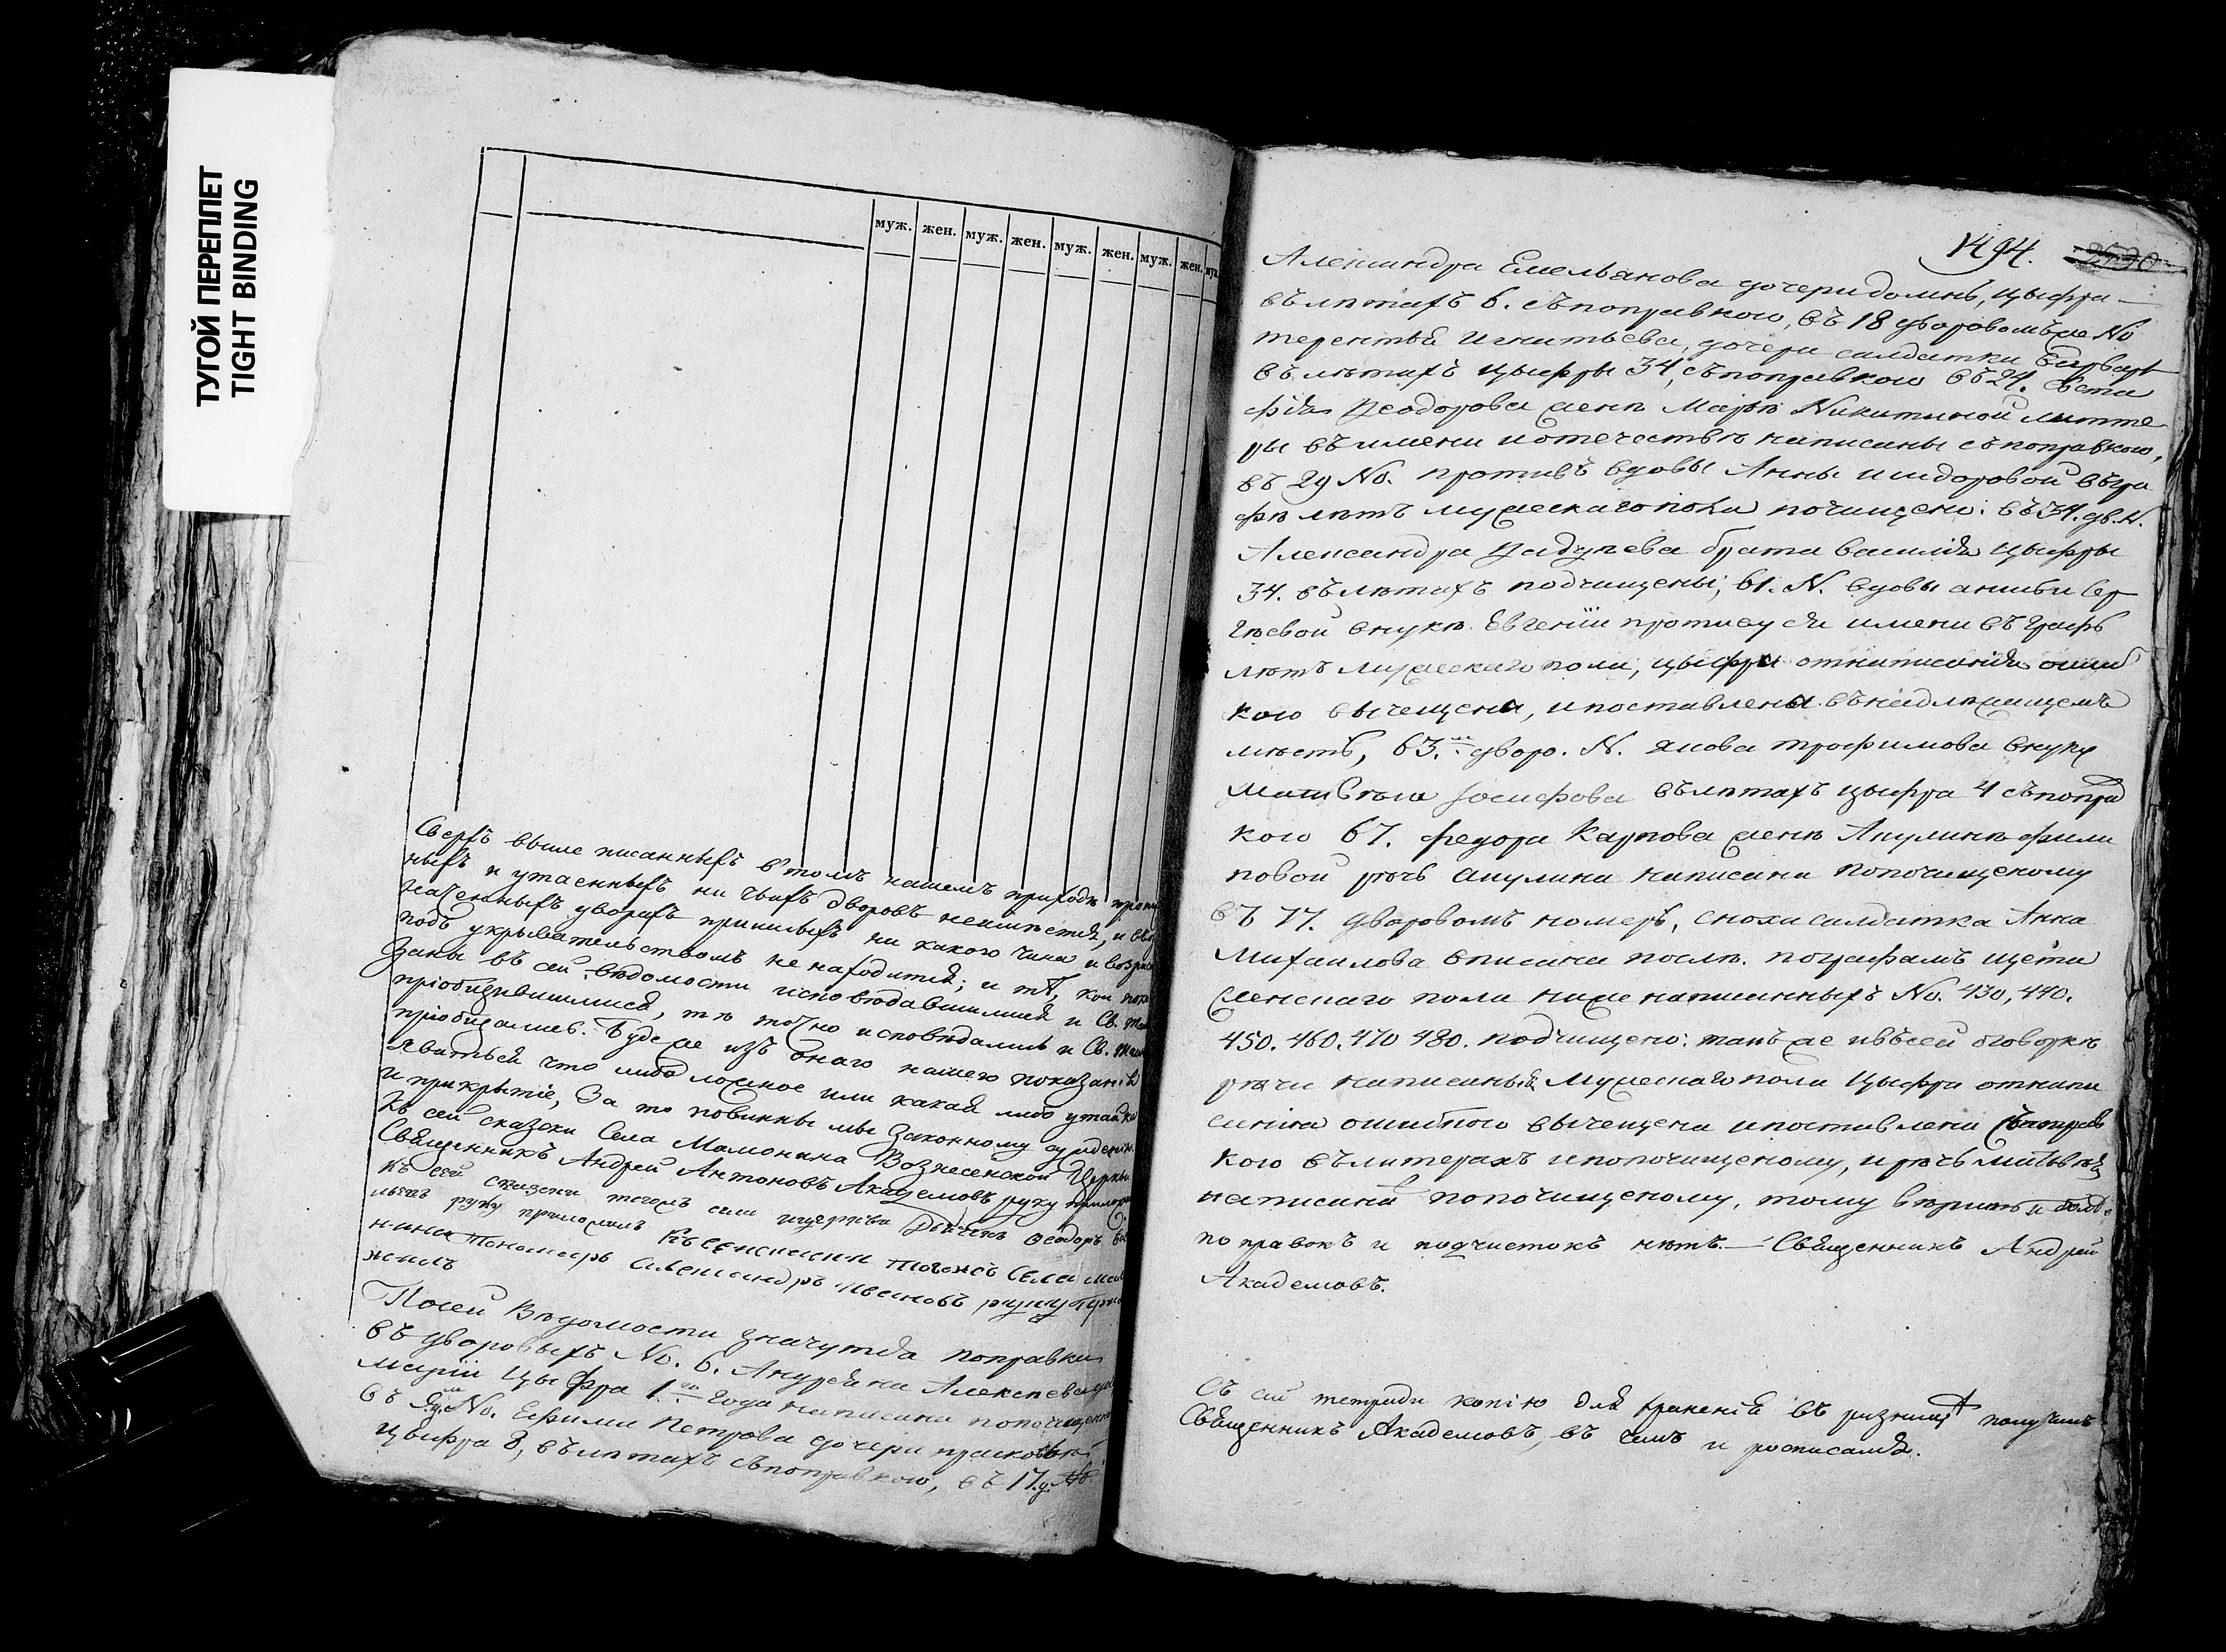 ТУГОЙ ПЕРЕПЛЕТ
TIGHT BINDING
муж. жен. муж. жен. муж. жен. муж. жен. муж.
Сверхъ выше писанныхъ в томъ нашемъ приходѣ
ныхъ и утаенныхъ ни чьихъ дворовъ неимѣется, и въ
дворахъ пришлыхъ ни какого чина и возра
подъ укрывательствомъ не находится; и тѣ, кои пока
заны въ сей вѣдомости исповѣдавшимися и Св. Таинъ
пріобщившимися, тѣ точно исповѣдались и Св. Таинъ
пріобщались. Буде же изъ онаго нашего показанія
явиться что либо ложное или какая либо утайка
и прикрытіе, За то повинны мы Законному сужденію.
Къ сей сказски Села Мамонина Вознесенской Церкви
Священникъ Андрей Антоновъ Академовъ руку приложи
Къ сей сказски тогожъ села церкви Дьячекъ Ѳеодоръ
руку приложилъ Къ сей тогожъ Села Мам
нина Пономарь Александръ Ивановъ руку при
жилъ
По сей Вѣдомости значутся поправки
въ дворовыхъ No. 6. Андреяна Алексѣева до
Маріи Цыфра 1го года написана по почищенно
въ No. Ефима Петрова дочери Прасковьи
цыфра 8, въ лѣтахъ съ поправкою, въ 17.
494. 2530
Александра Емельянова дочери Домнѣ, цыфра
въ лѣтахъ 6. съ поправкою, въ 18 дворовомъ же No
Терентья Игнатьева, дочери салдатки Варвары
въ лѣтахъ цыфры 34, съ поправкою въ 24. Еста
фія Ѳеодорова женѣ Марѳѣ Никитиной литте
ры въ имени и отечествѣ написаны съ поправкою,
въ 29 No. противъ вдовы Анны Исидоровой въ гра
фѣ лѣтъ мужескаго пола почищено: въ 34. дв. N.
Александра брата Василія цыфры
34. въ лѣтахъ подчищены; 61. N. вдовы Сер
гѣевой внукѣ Евгеніи противу ея имени въ графѣ
лѣтъ мужескаго пола, цыфра от написанія ошиб
кою вычещена, и поставлена въ надлежащемъ
мѣстѣ, 63.м дворо. N. Якова Трофимова внуку
Матвѣю Іосифова въ лѣтахъ цыфра 4 съ поправ
кою 67. Федора Карпова женѣ Акулинѣ Фили
повой рѣчь Акулина написана по почищеному
въ 77. дворовомъ номерѣ, сноха салдатка Анна
Михаилова вписана послѣ. по графамъ щета
женскаго пола ниже написанныхъ No. 430, 440.
450. 460. 470 480. подчищено: такъ же и въ сей оговоркѣ
рѣчи написаны Мужескаго пола Цыфра от напи
санія ошибкою вычещена и поставлена съ поправ
кою въ литерахъ и по почищеному, и рѣчь Матвѣя
написана по почищеному, тому вѣрить и боль
поправокъ и подчистокъ нѣтъ. — Священникъ Андрей
Академовъ.
Съ сей тетради копію для храненія въ ризницѣ получилъ
Священникъ Академовъ, въ чемъ и росписался.